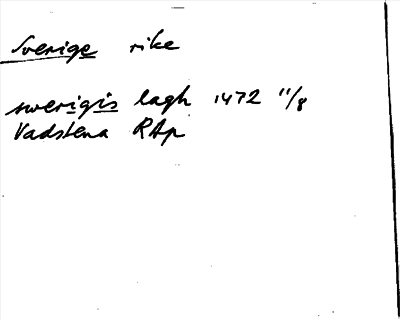 Sverige rike
swerigis lagh 1472 11/8
Vadstena RAp